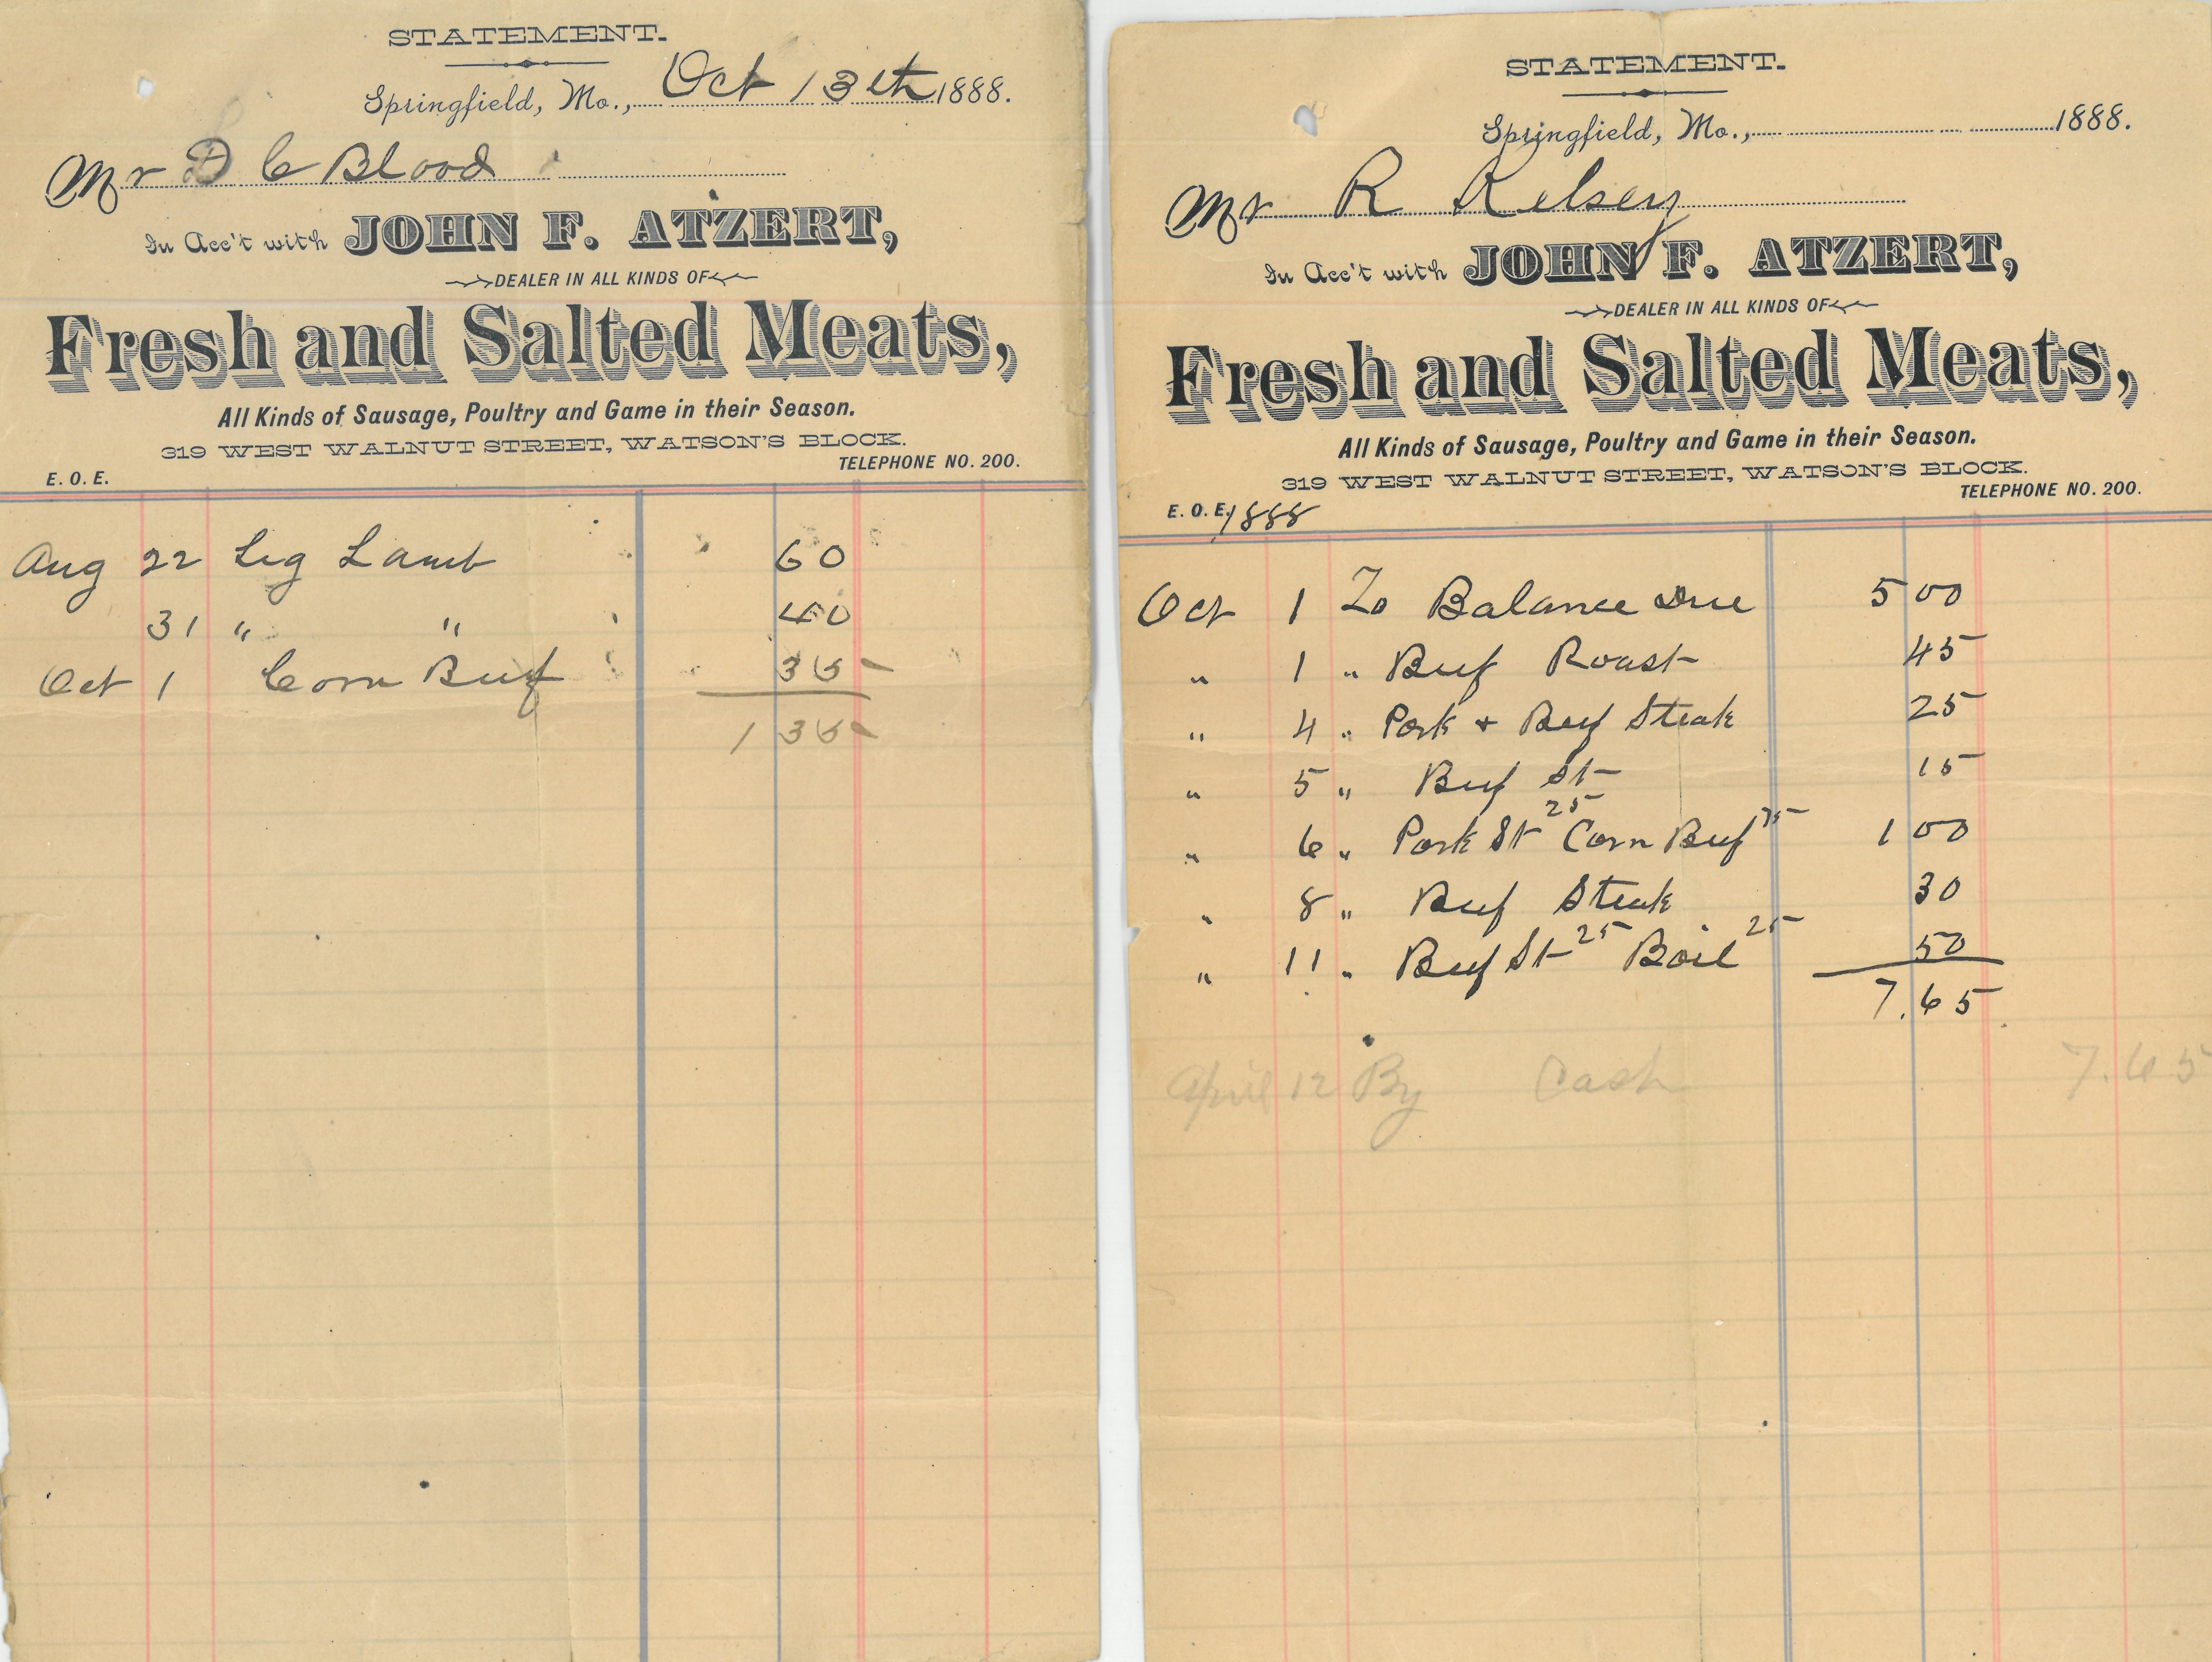 STATEMENT.
Springfield, Mo., Oct 13th 1888.
Mr D C Blood
In Acc't with JOHN F. ATZERT,
DEALER IN ALL KINDS OF
Fresh and Salted Meats,
All Kinds of Sausage, Poultry and Game in their Season.
319 WEST WALNUT STREET, WATSON'S BLOCK.
TELEPHONE NO. 200.
E. O. E.
Aug 22 Leg Lamb 60
31 " " 40
Oct 1 Corn Beef 35
1 35
STATEMENT.
Springfield, Mo., 1888.
Mr R Kelsey
In Acc't with JOHN F. ATZERT,
DEALER IN ALL KINDS OF
Fresh and Salted Meats,
All Kinds of Sausage, Poultry and Game in their Season.
319 WEST WALNUT STREET, WATSON'S BLOCK.
TELEPHONE NO. 200.
E. O. E. 1888
Oct 1 To Balance Due 5 00
" 1 " Beef Roast 45
" 4 " Pork + Beef Steak 25
" 5 " Beef St 15
" 6 " Pork St 25 Corn Beef 75 1 00
" 8 " Beef Steak 30
" 11 " Beef St 25 Boil 25 50
7.65
April 12 By Cash 7.65